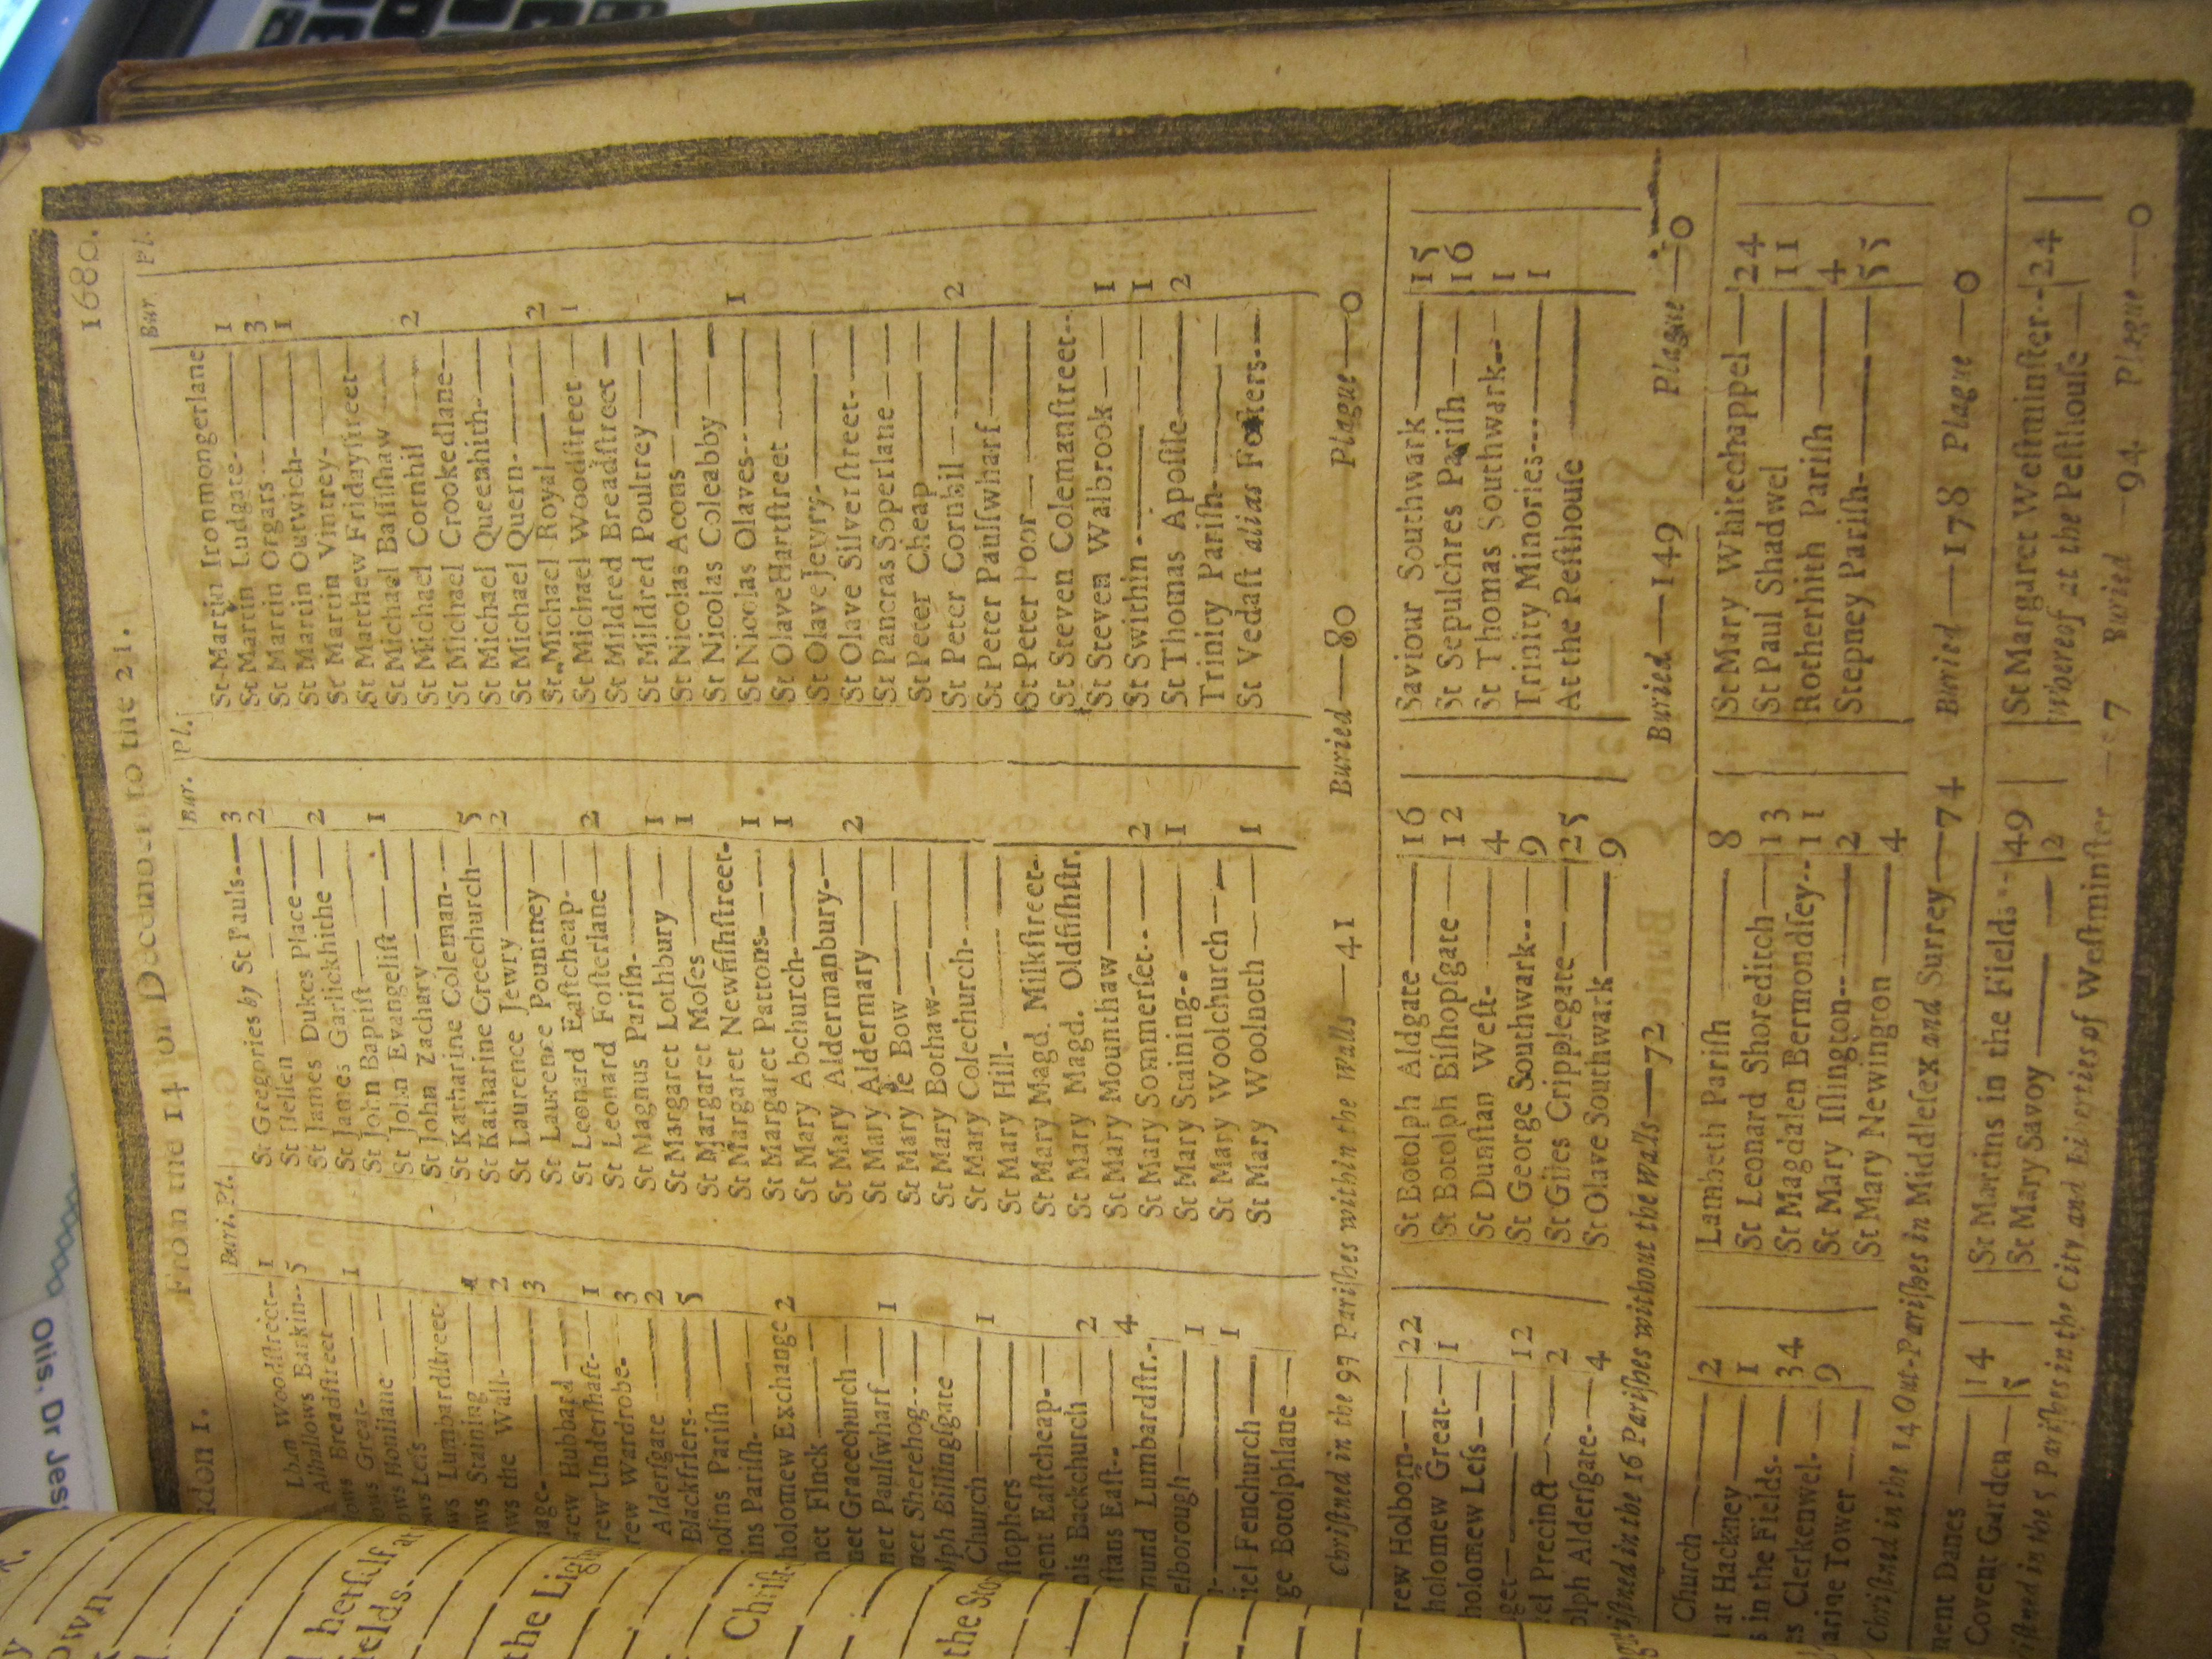 ndon 1.
From the 14 of December to the 21.
1680.
Buri. Pl.
Woodstreet-- 1
Alhallows Barkin-- 5
Breadstreet
ows Great- 1
ows Honilane
ows Less
ows Lumbardstreet
ows Staining
ows the Wall- 2
nage- 3
rew Hubbard
rew Undershaft- 1
rew Wardrobe- 3
Aldersgate 2
Blackfriers- 5
holins Parish
ins Parish-
holomew Exchange 2
net Finck
net Gracechurch
net Paulswharf 1
net Sherehog
olph Billingsgate
Church 1
stophers
ment Eastcheap-
nis Backchurch 2
stans East- 4
mund Lumbardstr.-
elborough 1
1
iel Fenchurch 1
ge Botolphlane
Bur. Pl.
St Gregories by St Pauls 3
St Hellen 2
St James Dukes Place
St James Garlickhithe 2
St John Baptist
St John Evangelist 1
St John Zachary
St Katharine Coleman-
St Katharine Creechurch 5
St Laurence Jewry 2
St Laurence Pountney
St Leonard Eastcheap-
St Leonard Fosterlane 2
St Magnus Parish-
St Margaret Lothbury 1
St Margaret Moses 1
St Margaret Newfishstreet-
St Margaret Pattons- 1
St Mary Abchurch- 1
St Mary Aldermanbury-
St Mary Aldermary 2
St Mary le Bow
St Mary Bothaw-
St Mary Colechurch-
St Mary Hill-
St Mary Magd. Milkstreet-
St Mary Magd. Oldfishstr.
St Mary Mounthaw
St Mary Sommerset-- 2
St Mary Staining-- 1
St Mary Woolchurch
St Mary Woolnoth 1
Bur. Pl.
St Martin Ironmongerlane
St Martin Ludgate- 1
St Martin Orgars 3
St Martin Outwich- 1
St Martin Vintrey-
St Matthew Fridaystreet
St Michael Basishaw
St Michael Cornhil 2
St Michael Crookedlane
St Michael Queenhith-
St Michael Quern-
St Michael Royal 2
St Michael Woodstreet 1
St Mildred Breadstreet
St Mildred Poultrey
St Nicolas Acons
St Nicolas Coleabby
St Nicolas Olaves- 1
St Olave Hartstreet
St Olave Jewry-
St Olave Silverstreet-
St Pancras Soperlane
St Peter Cheap
St Peter Cornhil 2
St Peter Paulswharf
St Peter Poor
St Steven Colemanstreet--
St Steven Walbrook 1
St Swithin 1
St Thomas Apostle 2
Trinity Parish-
St Vedast alias Fosters
Christned in the 97 Parishes within the Walls—41 Buried—80 Plague—0
rew Holborn- 22
holomew Great- 1
holomew Less
get 12
el Precinct 2
olph Aldersgate- 4
St Botolph Aldgate 16
St Botolph Bishopsgate 12
St Dunstan West- 4
St George Southwark-- 9
St Giles Cripplegate 25
St Olave Southwark 9
Saviour Southwark 15
St Sepulchres Parish 16
St Thomas Southwark-- 1
Trinity Minories 1
At the Pesthouse
Christned in the 16 Parishes without the Walls—72 Buried—149 Plague—0
Church 2
at Hackney 1
s in the Fields- 34
es Clerkenwel- 9
arine Tower
Lambeth Parish 8
St Leonard Shoreditch 13
St Magdalen Bermondsey-- 11
St Mary Islington-- 2
St Mary Newington 4
St Mary Whitechappel 24
St Paul Shadwel 11
Rotherhith Parish 4
Stepney Parish- 55
Christned in the 14 Out-Parishes in Middlesex and Surrey—74 Buried—178 Plague—0
ment Danes 14
Covent Garden
St Martins in the Fields 49
St Mary Savoy 2
St Margaret Westminster-- 24
Whereof at the Pesthouse
istned in the 5 Parishes in the City and Liberties of Westminster Buried—94 Plague—0
own
herself at
fields-
the Ligh
Christ
the Sto
Otis, Dr Jess